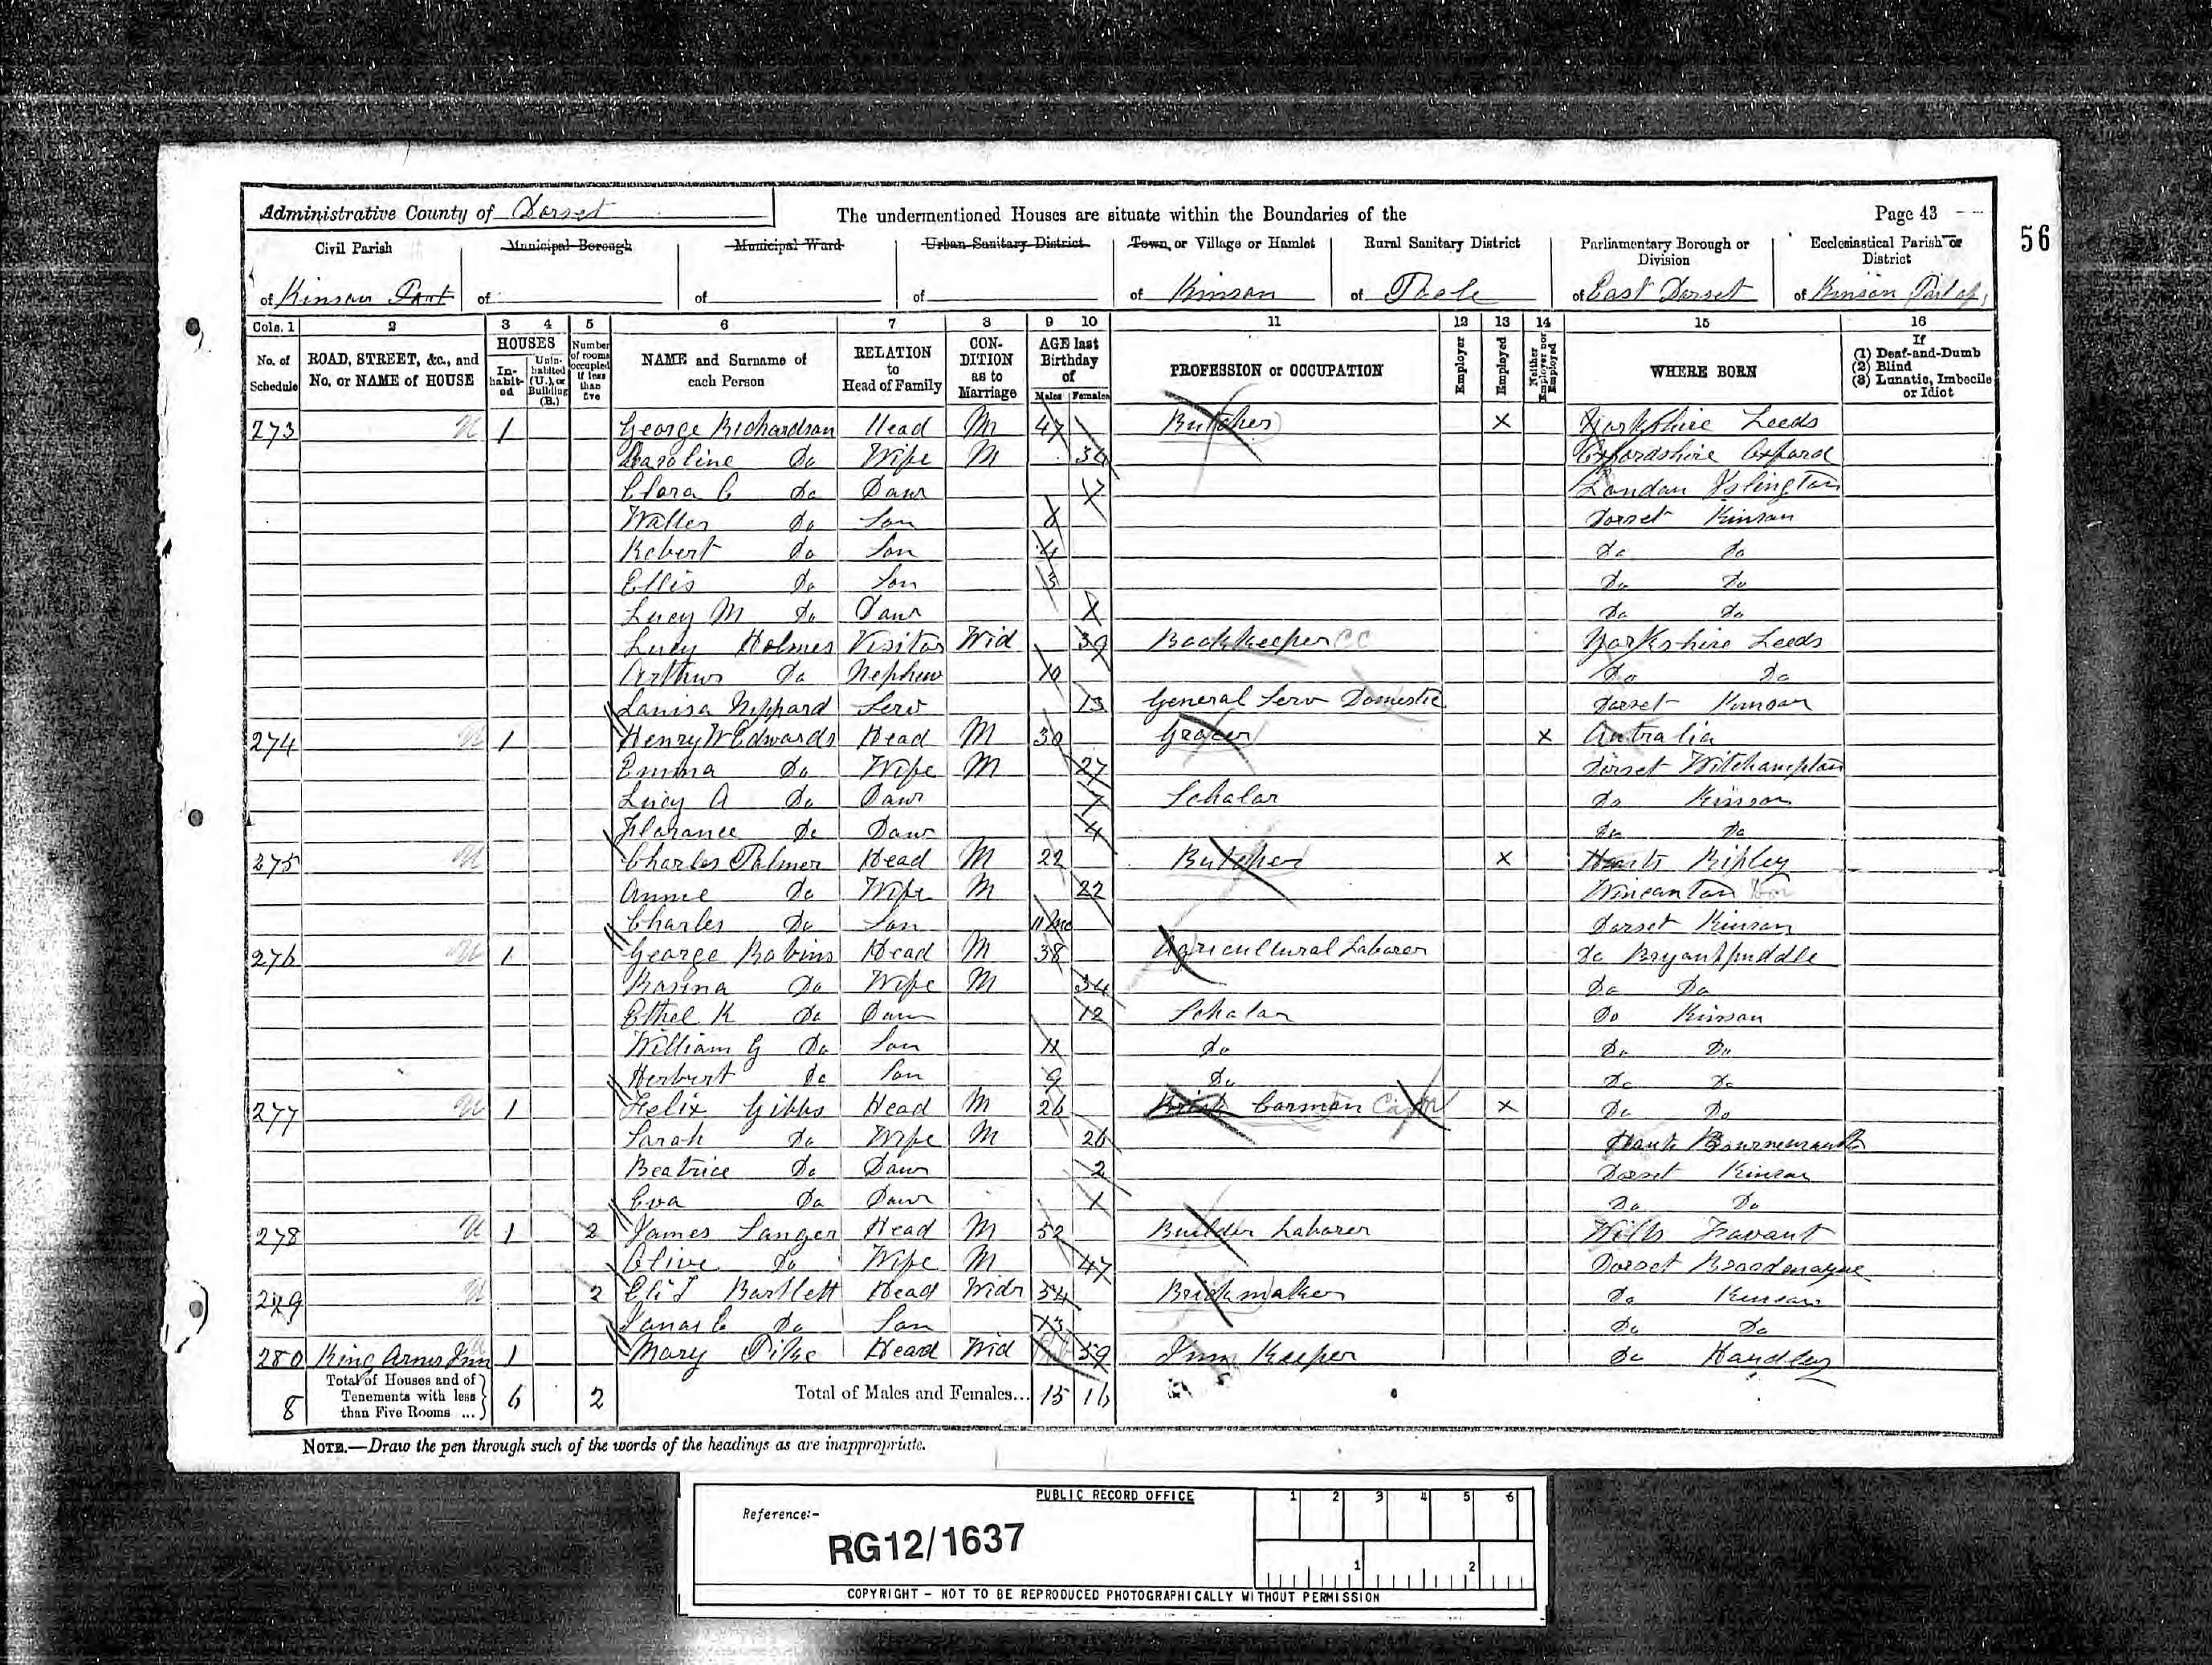 Administrative County of Dorset
The undermentioned Houses are situate within the Boundaries of the
Page 43
56
Civil Parish
Municipal Borough
Municipal Ward
Urban Sanitary District
Town, or Village or Hamlet
Rural Sanitary District
Parliamentary Borough or Division
Ecclesiastical Parish or District
of Kinson Part
of
of
of
of Kinson
of Poole
of East Dorset
of Kinson Part of
Cols. 1 2 3 4 5 6 7 8 9 10 11 12 13 14 15 16
No. of Schedule
ROAD, STREET, &c., and No. or NAME of HOUSE
HOUSES
In-habit-ed
Unin-habited (U.), or Building (B.)
Number of rooms occupied if less than five
NAME and Surname of each Person
RELATION to Head of Family
CON-DITION as to Marriage
AGE last Birthday of
Males Females
PROFESSION or OCCUPATION
Employer
Employed
Neither Employer nor Employed
WHERE BORN
If
(1) Deaf-and-Dumb
(2) Blind
(3) Lunatic, Imbecile or Idiot
273 1 George Richardson Head M 47 Butcher X Yorkshire Leeds
Caroline Do Wife M 34 Oxfordshire Oxford
Clara C Do Daur 17 London Islington
Walter Do Son 8 Dorset Kinson
Robert Do Son 4 Do Do
Ellis Do Son 3 Do Do
Lucy M Do Daur 1 Do Do
Lucy Holmes Visitor Wid 39 Bookkeeper CC Yorkshire Leeds
Arthur Do Nephew 10 Do Do
Louisa Neppard Serv 13 General Serv Domestic Dorset Kinson
274 1 Henry W Edwards Head M 30 Grocer X Autralia
Emma Do Wife M 27 Dorset Witchampton
Lucy A Do Daur 7 Scholar Do Kinson
Florance Do Daur 4 Do Do
275 Charles Palmer Head M 22 Butcher X Hants Ripley
Annie Do Wife M 22 Wincanton
Charles Do Son 11 mo Dorset Kinson
276 1 George Robins Head M 38 Agricultural Laborer Do Bryantspuddle
Rosina Do Wife M 34 Do Do
Ethel K Do Daur 12 Scholar Do Kinson
William G Do Son 11 Do Do Do
Herbert Do Son 9 Do Do Do
277 1 Felix Gibbs Head M 26 Brick Carman X Do Do
Sarah Do Wife M 26 Hants Bournemouth
Beatrice Do Daur 2 Dorset Kinson
Eva Do Daur 1 Do Do
278 1 2 James Sanger Head M 52 Builder Laborer Wilts Fovant
Olive Do Wife M 47 Dorset Broadmayne
279 2 Eli J Bartlett Head Widr 54 Brickmaker Do Kinson
Jonas C Do Son 13 Do Do
280 King Arms Inn 1 Mary Pike Head Wid 59 Inn Keeper Do Handley
8 Total of Houses and of Tenements with less than Five Rooms ... 6 2 Total of Males and Females... 15 16
NOTE.—Draw the pen through such of the words of the headings as are inappropriate.
PUBLIC RECORD OFFICE
1 2 3 4 5 6
Reference:-
RG12/1637
1 2
COPYRIGHT - NOT TO BE REPRODUCED PHOTOGRAPHICALLY WITHOUT PERMISSION